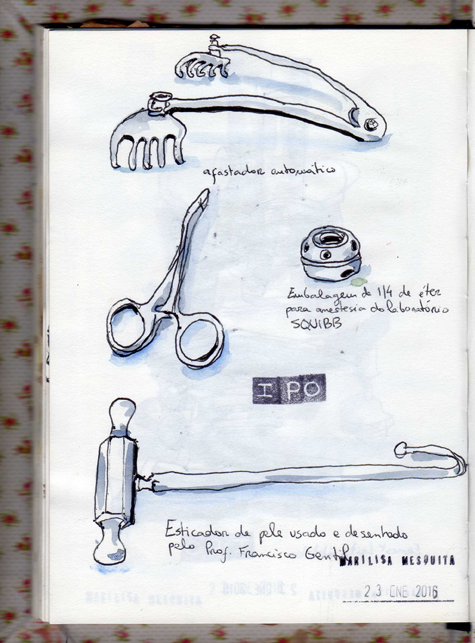 afastador automático
Embalagem de 1/4 de éter
para anestesia do laboratório
SQUIBB
IPO
Esticador de pele usado e desenhado
pelo Prof. Francisco Gentil
MARILISA MESQUITA
23 ENE 2016